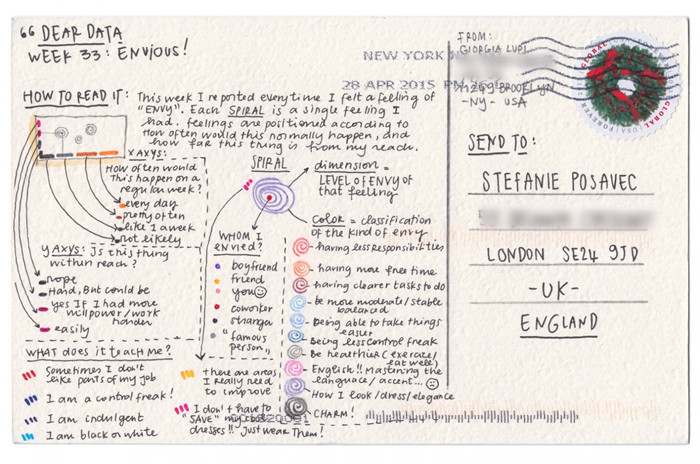 " DEAR DATA
WEEK 33: ENVIOUS!
HOW TO READ IT:
This week I reported everytime I felt a feeling of
"ENVY". Each SPIRAL is a single feeling I
had. feelings are positioned according to
How often would this normally happen, and
how far this thing is from my reach.
X AXYS:
How often would
This happen on a
regular week?
every day
pretty often
like 1 a week
not likely
Y AXYS: Is this thing
within reach?
nope
Hard, But could be
yes If I had more
willpower/work
harder
easily
SPIRAL
dimension =
LEVEL OF ENVY OF
that feeling
COLOR = classification
of the kind of envy
WHOM I
ENVIED?
boyfriend
friend
you ☺
coworker
stranger
"famous
person"
having less responsibilities
having more free time
having clearer tasks to do
be more moderate/stable
balanced
Being able to take things
easier
Being less control freak
Be healthier (exercise/
eat well)
English!! Mastering the
language/accent...
How I look/dress/elegance
CHARM!
WHAT does it teach me?
Sometimes I don't
like parts of my job
I am a control freak!
I am indulgent
I am black or white
there are areas
I really need
to improve
I don't have to
"SAVE" my cool
dresses!! Just wear Them!
NEW YORK N
28 APR 2015 PM
FROM:
GIORGIA LUPI
BROOKLYN
-NY- USA
GLOBAL
GLOBAL
SEND TO:
STEFANIE POSAVEC
LONDON SE24 9JD
-UK-
ENGLAND